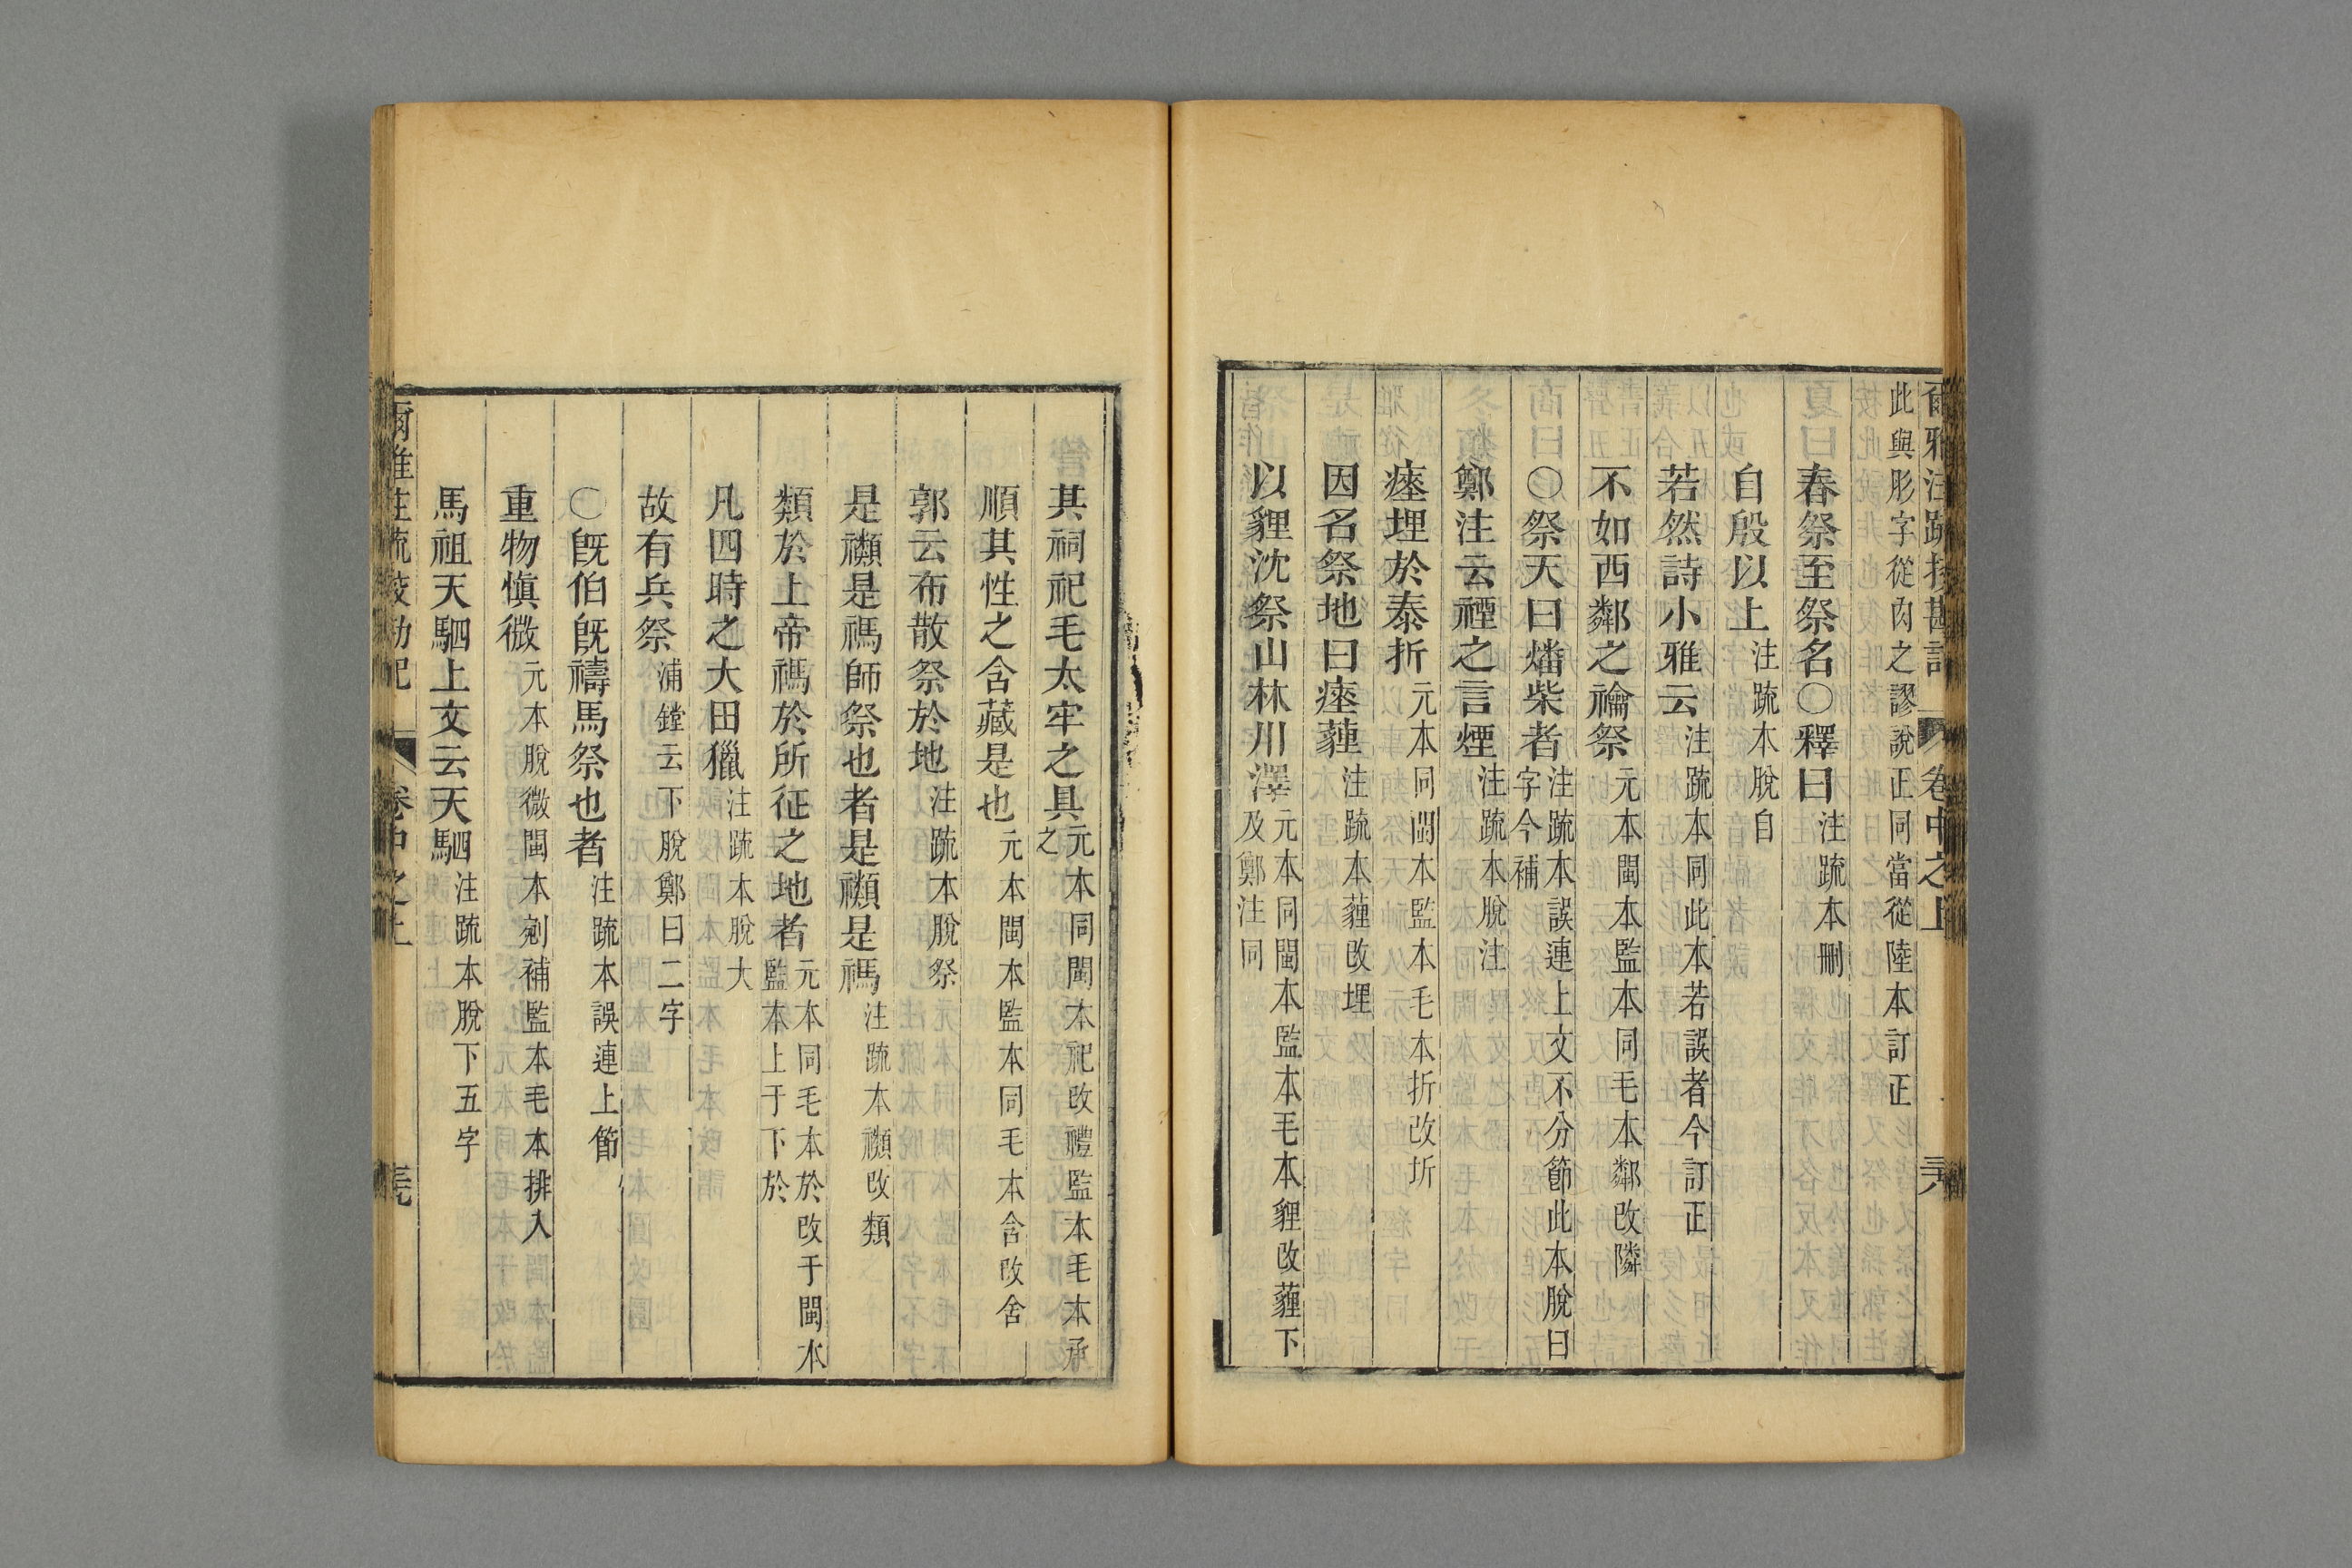 爾雅注疏挍勘記 卷中之上 天
此與肜字從肉之謬說正同當從陸本訂正
春祭至祭名○釋曰注疏本刪
自殷以上注疏本脫自
若然詩小雅云注疏本同此本若誤者今訂正
不如西鄰之禴祭元本閩本監本同毛本鄰改隣
○祭天曰燔柴者注疏本誤連上文不分節此本脫曰字今補
鄭注云禋之言煙注疏本脫注
瘞埋於泰折元本同閩本監本毛本折改圻
因名祭地曰瘞薶注疏本薶改埋
以貍沈祭山林川澤元本同閩本監本毛本貍改薶下及鄭注同
其祠祀毛太牢之具元本同閩本祀改禮監本毛本承之
順其性之含藏是也元本閩本監本同毛本含改舍
郭云布散祭於地注疏本脫祭
是禷是禡師祭也者是禷是禡注疏本禷改類
類於上帝禡於所征之地者元本同毛本於改于閩本監本上于下於
凡四時之大田獵注疏本脫大
故有兵祭浦鏜云下脫鄭曰二字
○旣伯旣禱馬祭也者注疏本誤連上節
重物愼微元本脫微閩本剜補監本毛本排入
馬祖天駟上文云天駟注疏本脫下五字
爾雅注疏挍勘記 卷中之上